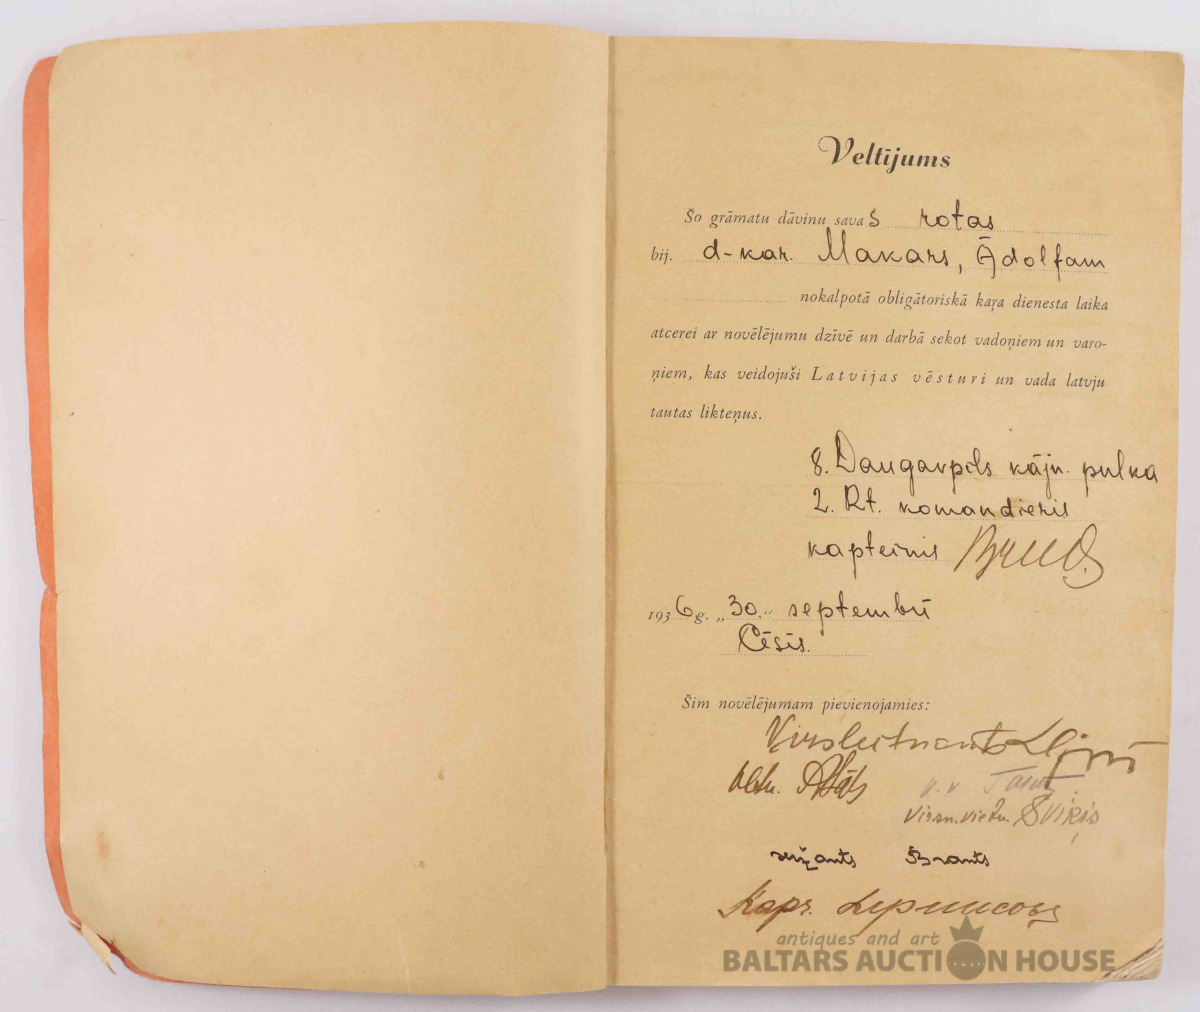 Veltījums
Šo grāmatu dāvinu savas rotas
bij. d-kar. Makars, Ādolfam
nokalpotā obligātoriskā kaŗa dienesta laika
atcerei ar novēlējumu dzīvē un darbā sekot vadoņiem un varo-
ņiem, kas veidojuši Latvijas vēsturi un vada latvju
tautas likteņus.
8. Daugavpils kājn. pulka
2. Rt. komandieris
kapteinis
1936 g. „30." septembrī
Cēsīs.
Šim novēlējumam pievienojamies:
Virsleitnants
v.v
Virsn.vietn. Sviķis
seržants Brants
Kapr.
antiques and art
BALTARS AUCTION HOUSE